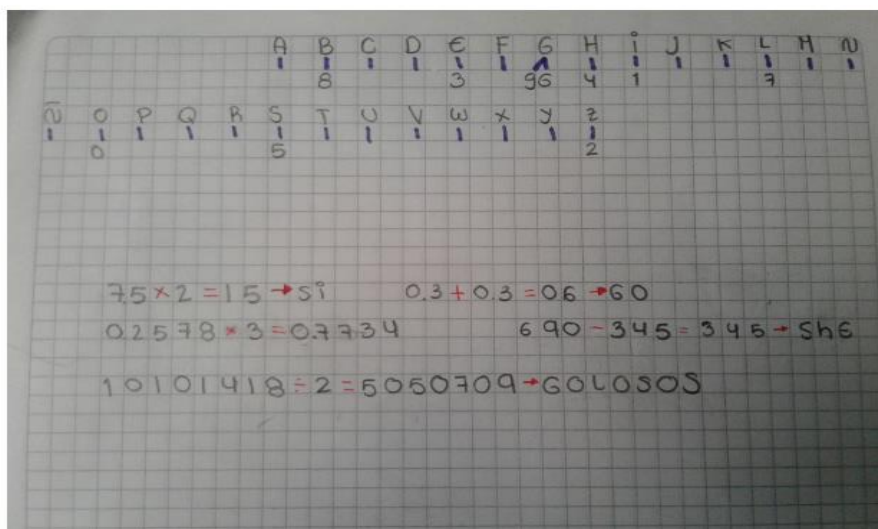 A B C D E F G H i J K L M N
8 3 96 4 1 7
Ñ O P Q R S T U V W X Y Z
0 5 2
7.5 × 2 = 15 → Si 0.3 + 0.3 = 06 → GO
0.2578 × 3 = 0.7734 690 - 345 = 345 → ShE
10101418 ÷ 2 = 5050709 → GOLOSOS